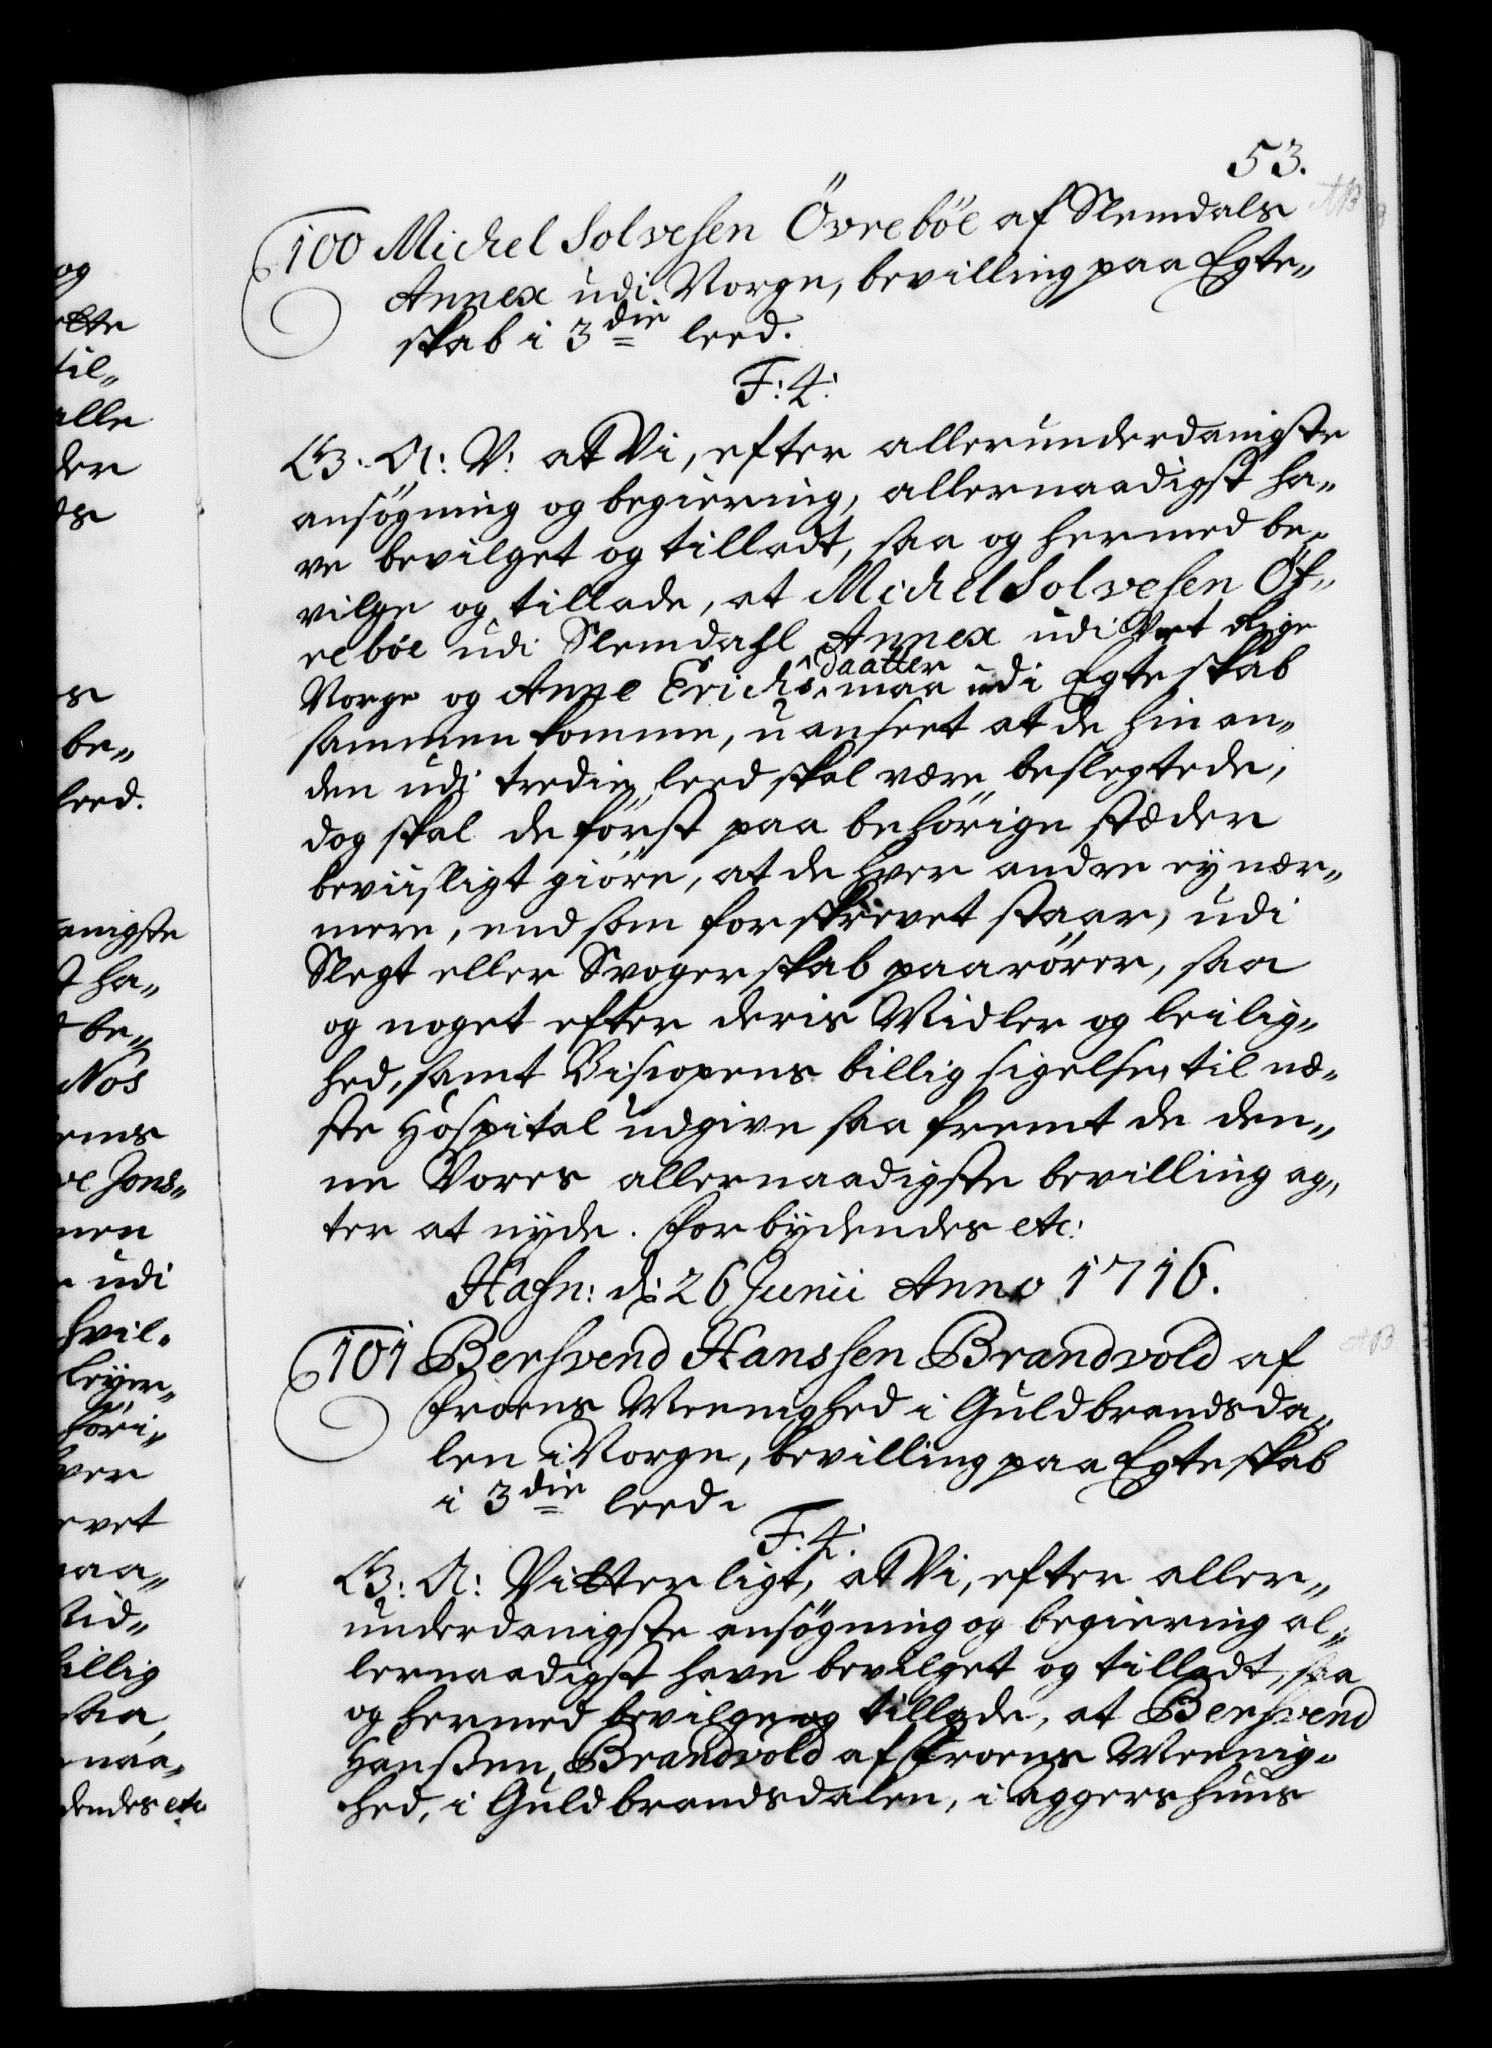 53.
100 Michel Solvesen Övreböe af Slemdals
Annex udi Norge, bevilling paa Egte„
skab i 3die leed.
F: 4:
G: A: V: at Vi, efter allerunderdanigste
ansögning og begiering, allernaadigst ha„
ve bevilget og tilladt, saa og hermed be„
vilge og tillade, at Michel Solvesen Öf„
reböe udi Slemdahl Annex udi Vort Rige
Norge og Anne Erichsdaatter maa udi Egteskab
sammen komme, uanseet at de hinan„
den udi tredie leed skal være beslegtede,
dog skal de först paa behörige stæder
beviisligt giöre, at de hver andre ey nær„
mere, end som forskrevet staar, udi
Slegt eller Svogerskab paarörer, saa
og noget efter deris Midler og leilig„
hed, samt Biscopens billig sigelse, til næ„
ste Hospital udgive saa fremt de den„
ne Vores allernaadigste bevilling ag„
ter at nyde. Forbydendes etc:
Hafn: d: 26 Junii Anno 1716.
101 Berhvend Hanssen Brandvold af
Froens Meenighed i Guldbrandsda„
len i Norge, bevilling paa Egteskab
i 3die leed.
F: 4:
G: A: Vitterligt, at Vi, efter aller„
underdanigste ansögning og begiering al„
lernaadigst have bevilget og tilladt, saa
og hermed bevilge og tillade, at Berhvend
Hanssen Brandvold af Froens Meenig„
hed, i Guldbrandsdalen, i Aggershuus